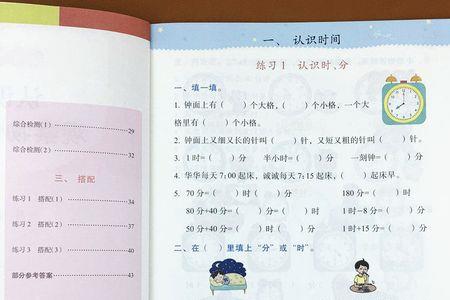 综合检测(1) 29
综合检测(2) 32
三、 搭配
练习1 搭配(1) 34
练习2 搭配(2) 37
练习3 搭配(3) 40
部分参考答案 43
一、 认识时间
练习1 认识时、分
一、填一填。
1. 钟面上有( )个大格,( )个小格,一个大
格里有( )个小格。
2. 钟面上又细又长的针叫( )针,又短又粗的针叫( )针。
3. 1时=( )分 半小时=( )分 一刻钟=( )分
4. 华华每天7:00起床,诚诚每天7:15起床,( )起床早。
5. 70分=( )时( )分 180分=( )时
80分+40分=( )分=( )时 1时-8分=( )分
50分+40分=( )时( )分 1时+15分=( )分
二、在( )里填上“分”或“时”。